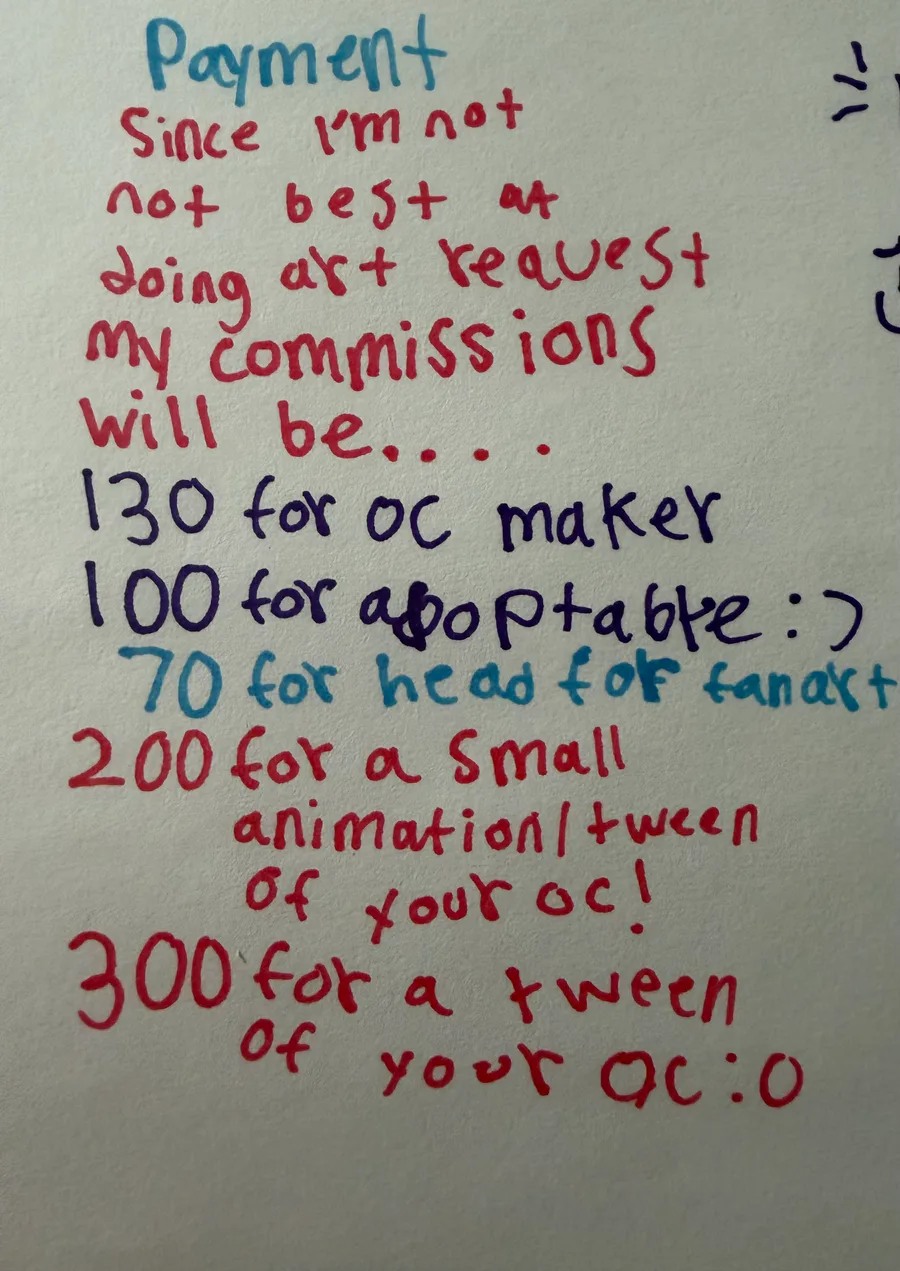 Payment
Since I'm not
not best at
doing art request
my commissions
will be....
130 for oc maker
100 for adoptable :)
70 for head for fanart
200 for a small
animation/tween
of your oc!
300 for a tween
of your oc :o